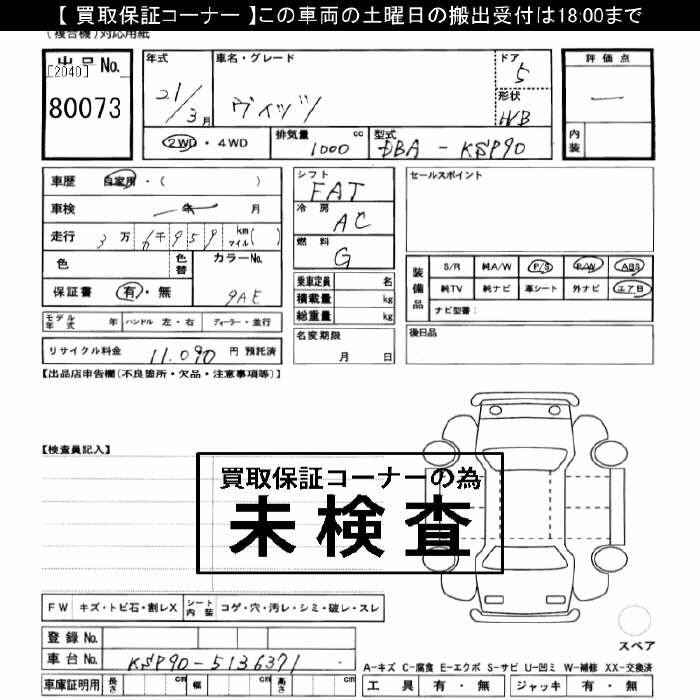 【 買取保証コーナー 】この車両の土曜日の搬出受付は18:00まで
(複合機)対応用紙
出品No.
[2040]
80073
年式 21/3月
車名・グレード ヴィッツ
ドア 5
形状 H/B
2WD・4WD
排気量 1000 cc
型式 DBA - KSP90
評価点 —
内装
車歴 自家用・( )
車検 年 月
走行 3万6千959 km マイル( )
色 色替 カラーNo. 9AE
保証書 有・無
モデル年式 年 ハンドル 左・右 ディーラー・並行
リサイクル料金 11,090 円 預託済
シフト FAT
冷房 AC
燃料 G
乗車定員 名
積載量 kg
総重量 kg
名変期限 月 日
セールスポイント
装備品
S/R 純A/W P/S P/W ABS
純TV 純ナビ 革シート 外ナビ エアB
ナビ型番:
後日品
【出品店申告欄(不良箇所・欠品・注意事項等)】
【検査員記入】
買取保証コーナーの為
未検査
FW キズ・トビ石・割レX シート内装 コゲ・穴・汚レ・シミ・破レ・スレ
登録No.
車台No. KSP90-5136371
車庫証明用 長さ cm 幅 cm 高さ cm
スペア
A-キズ C-腐食 E-エクボ S-サビ U-凹ミ W-補修 XX-交換済
工具 有・無 ジャッキ 有・無